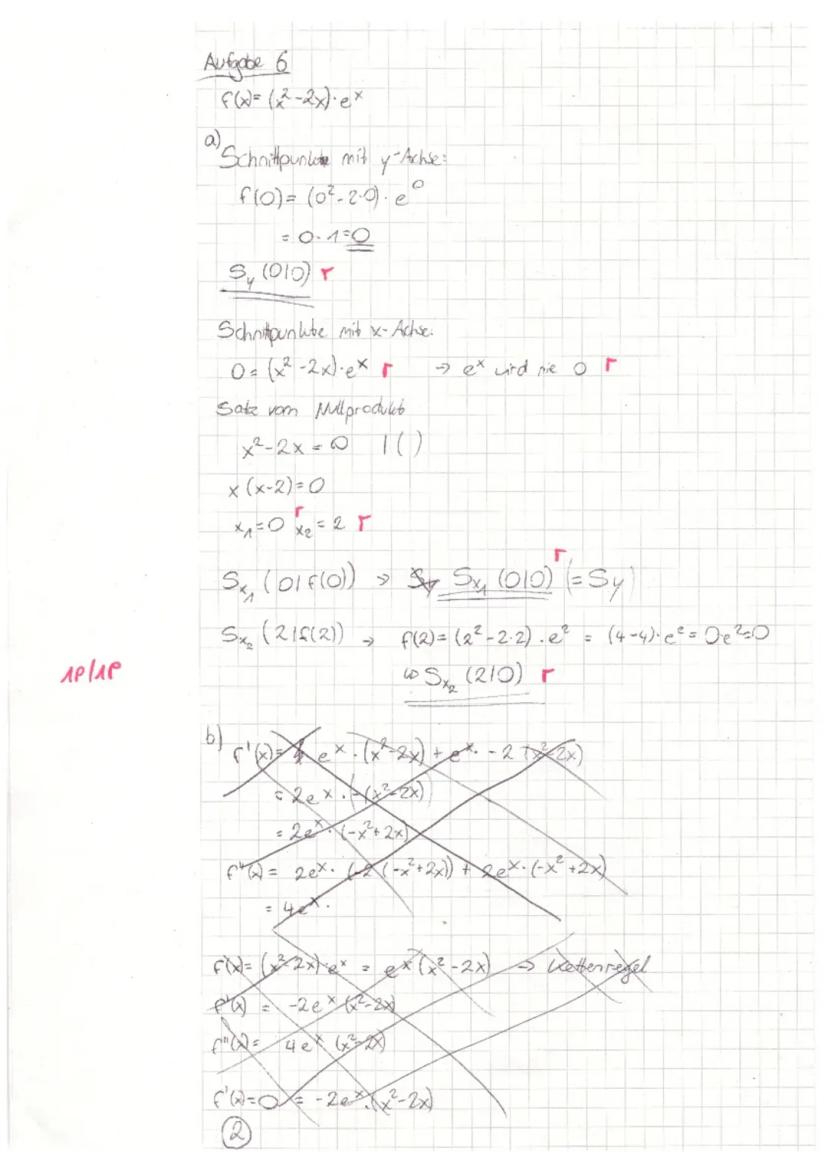 Aufgabe 6
f(x)= (x²-2x)·eˣ
a) Schnittpunkte mit y-Achse:
f(0)= (0²-2·0)·e⁰
= 0·1=0
S_y (0|0) r
Schnittpunkte mit x-Achse:
0= (x²-2x)·eˣ r → eˣ wird nie 0 r
Satz vom Nullprodukt
x²-2x=0 |( )
x(x-2)=0
x₁=0 r x₂=2 r
S_x₁ (0|f(0)) → S_x₁ (0|0) r (=Sy)
S_x₂ (2|f(2)) → f(2)=(2²-2·2)·e² = (4-4)·e²=0·e²=0
1P/1P
↳ S_x₂ (2|0) r
b) f'(x)= eˣ·(x²-2x) + eˣ· -2 (x²-2x)
= 2eˣ·(-(x²-2x))
= 2eˣ·(-x²+2x)
f''(x)= 2eˣ·(-2(-x²+2x)) + 2eˣ·(-x²+2x)
= 4eˣ·
f(x)= (x²-2x)·eˣ = eˣ(x²-2x) → Kettenregel
f'(x) = -2eˣ (x²-2x)
f''(x)= 4eˣ (x²-2x)
f'(x)=0 = -2eˣ·(x²-2x)
2